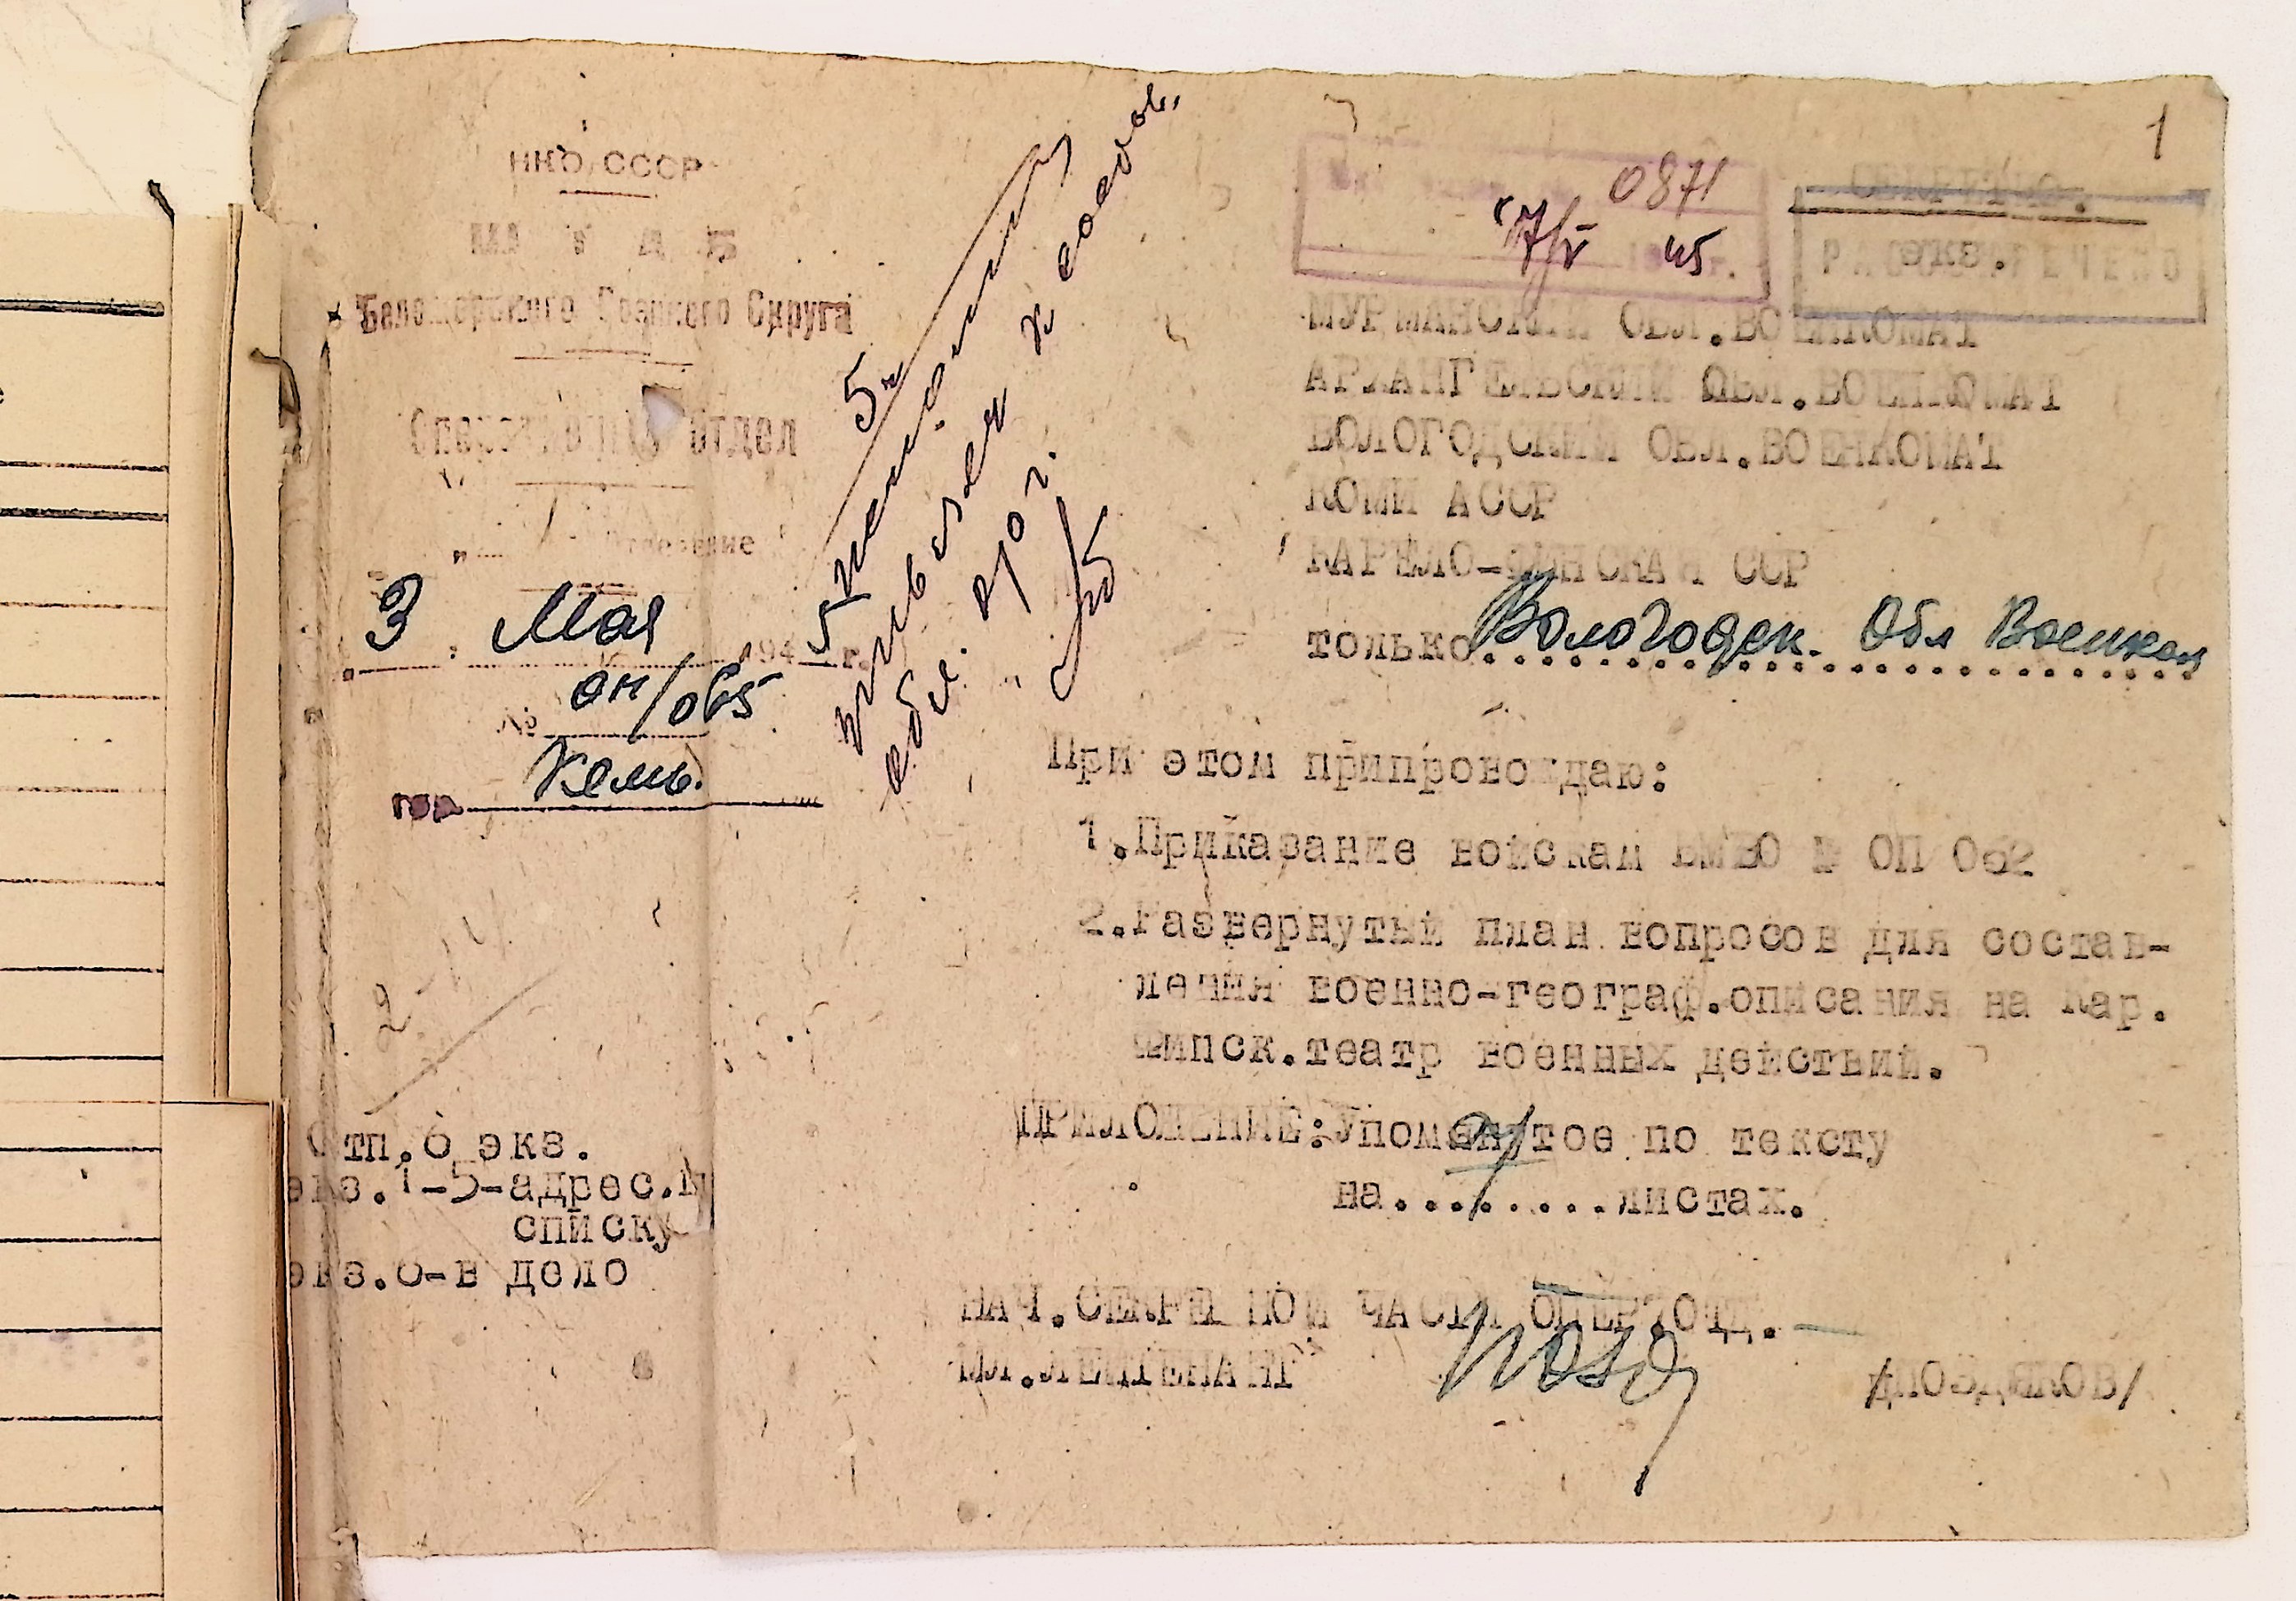 1
НКО СССР
ШТАБ
Беломорского Военного Округа
Оперативный отдел
Отделение
3 Мая 1945 г.
№ оп/065
гор. Кемь.
5ч
0871
7/V 45
СЕКРЕТНО.
экз.
РАССЕКРЕЧЕНО
МУРМАНСКИЙ ОБЛ.ВОЕНКОМАТ
АРХАНГЕЛЬСКИЙ ОБЛ.ВОЕНКОМАТ
ВОЛОГОДСКИЙ ОБЛ.ВОЕНКОМАТ
КОМИ АССР
КАРЕЛО-ФИНСКАЯ ССР
только Вологодск. Обл Военком
При этом припровождаю:
1.Приказание войскам БМВО № ОП 062
2.Развернутый план вопросов для состав-
ления военно-географ.описания на Кар.
Финск.театр военных действий.
ПРИЛОЖЕНИЕ:Упомянутое по тексту
на.........листах.
Отп.6 экз.
экз.1-5-адрес.п
списку
экз.6-в дело
НАЧ.СЕКРЕТНОЙ ЧАСТИ ОПЕР.ОТД.
МЛ.ЛЕЙТЕНАНТ
/ПОЗДНЯКОВ/